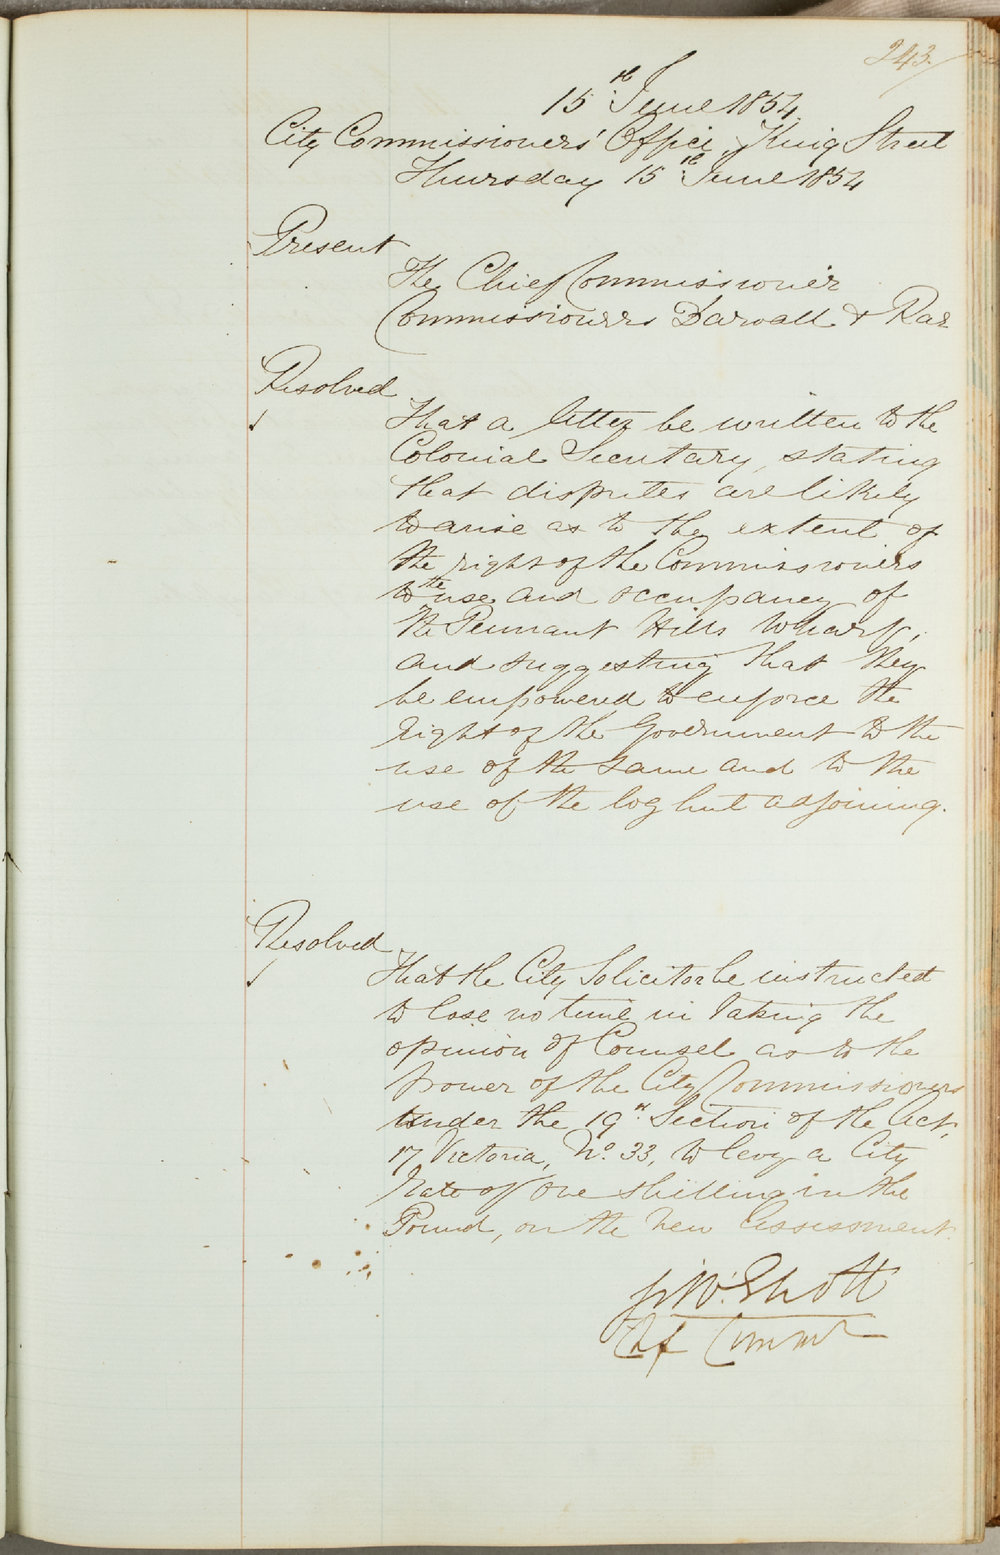 243.
15th June 1854.
City Commissioners' Office, King Street
Thursday 15th June 1854
Present
The Chief Commissioner
Commissioners Darvall & Rae
Resolved
That a letter be written to the
Colonial Secretary, stating
that disputes are likely
to arise as to the extent of
the right of the Commissioners
to the use and occupancy of
the Pennant Hills Wharf,
and suggesting that they
be empowered to enforce the
right of the Government to the
use of the same and to the
use of the log hut adjoining.
Resolved
That the City Solicitor be instructed
to lose no time in taking the
opinion of Counsel as to the
power of the City Commissioners
under the 19th Section of the Act,
17 Victoria, No. 33, to levy a City
Rate of One Shilling in the
Pound, on the new Assessment.
G. W. Elliott
Chf Commr